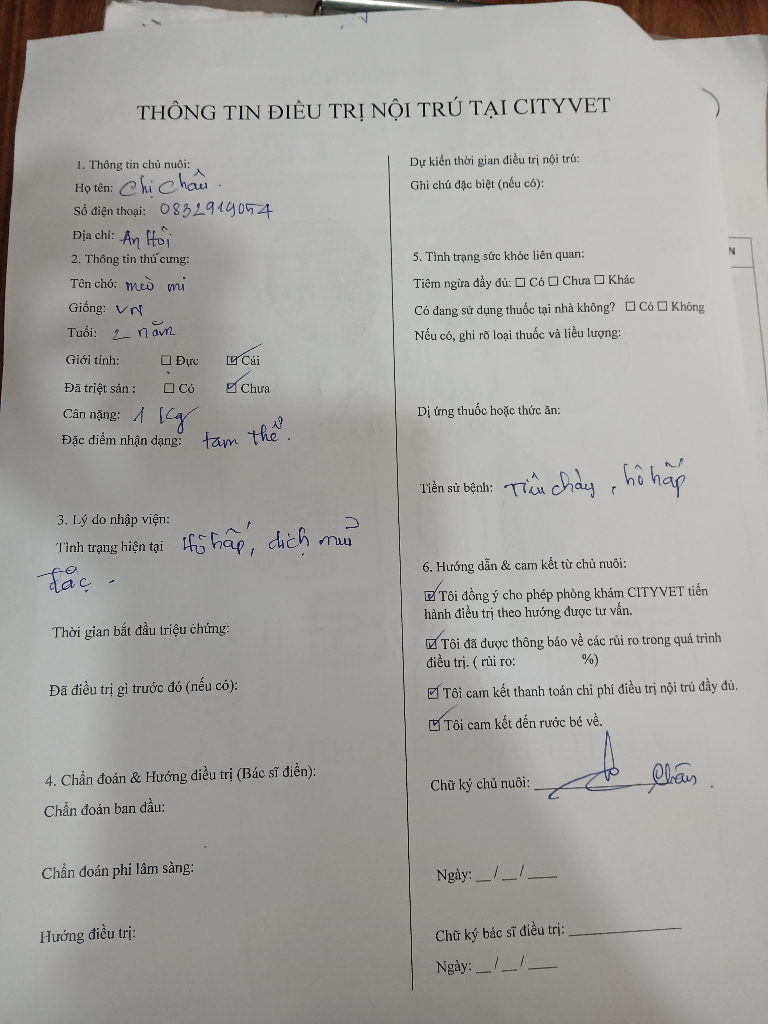 THÔNG TIN ĐIỀU TRỊ NỘI TRÚ TẠI CITYVET
1. Thông tin chủ nuôi:
Họ tên: Chị Châu.
Số điện thoại: 0832919054
Địa chỉ: An Hội
2. Thông tin thú cưng:
Tên chó: mèo mi
Giống: VN
Tuổi: 2 năm
Giới tính: ☐ Đực ☑ Cái
Đã triệt sản : ☐ Có ☑ Chưa
Cân nặng: 1 Kg
Đặc điểm nhận dạng: tam thể.
3. Lý do nhập viện:
Tình trạng hiện tại Hô hấp, dịch mũi
đặc.
Thời gian bắt đầu triệu chứng:
Đã điều trị gì trước đó (nếu có):
4. Chẩn đoán & Hướng điều trị (Bác sĩ điền):
Chẩn đoán ban đầu:
Chẩn đoán phi lâm sàng:
Hướng điều trị:
Dự kiến thời gian điều trị nội trú:
Ghi chú đặc biệt (nếu có):
5. Tình trạng sức khỏe liên quan:
Tiêm ngừa đầy đủ: ☐ Có ☐ Chưa ☐ Khác
Có đang sử dụng thuốc tại nhà không? ☐ Có ☐ Không
Nếu có, ghi rõ loại thuốc và liều lượng:
Dị ứng thuốc hoặc thức ăn:
Tiền sử bệnh: Tiêu chảy, hô hấp
6. Hướng dẫn & cam kết từ chủ nuôi:
☑ Tôi đồng ý cho phép phòng khám CITYVET tiến
hành điều trị theo hướng được tư vấn.
☑ Tôi đã được thông báo về các rủi ro trong quá trình
điều trị. ( rủi ro: %)
☑ Tôi cam kết thanh toán chi phí điều trị nội trú đầy đủ.
☑ Tôi cam kết đến rước bé về.
Chữ ký chủ nuôi: Châu.
Ngày: __ / __ / ____
Chữ ký bác sĩ điều trị: ____________
Ngày: __ / __ / ____
N